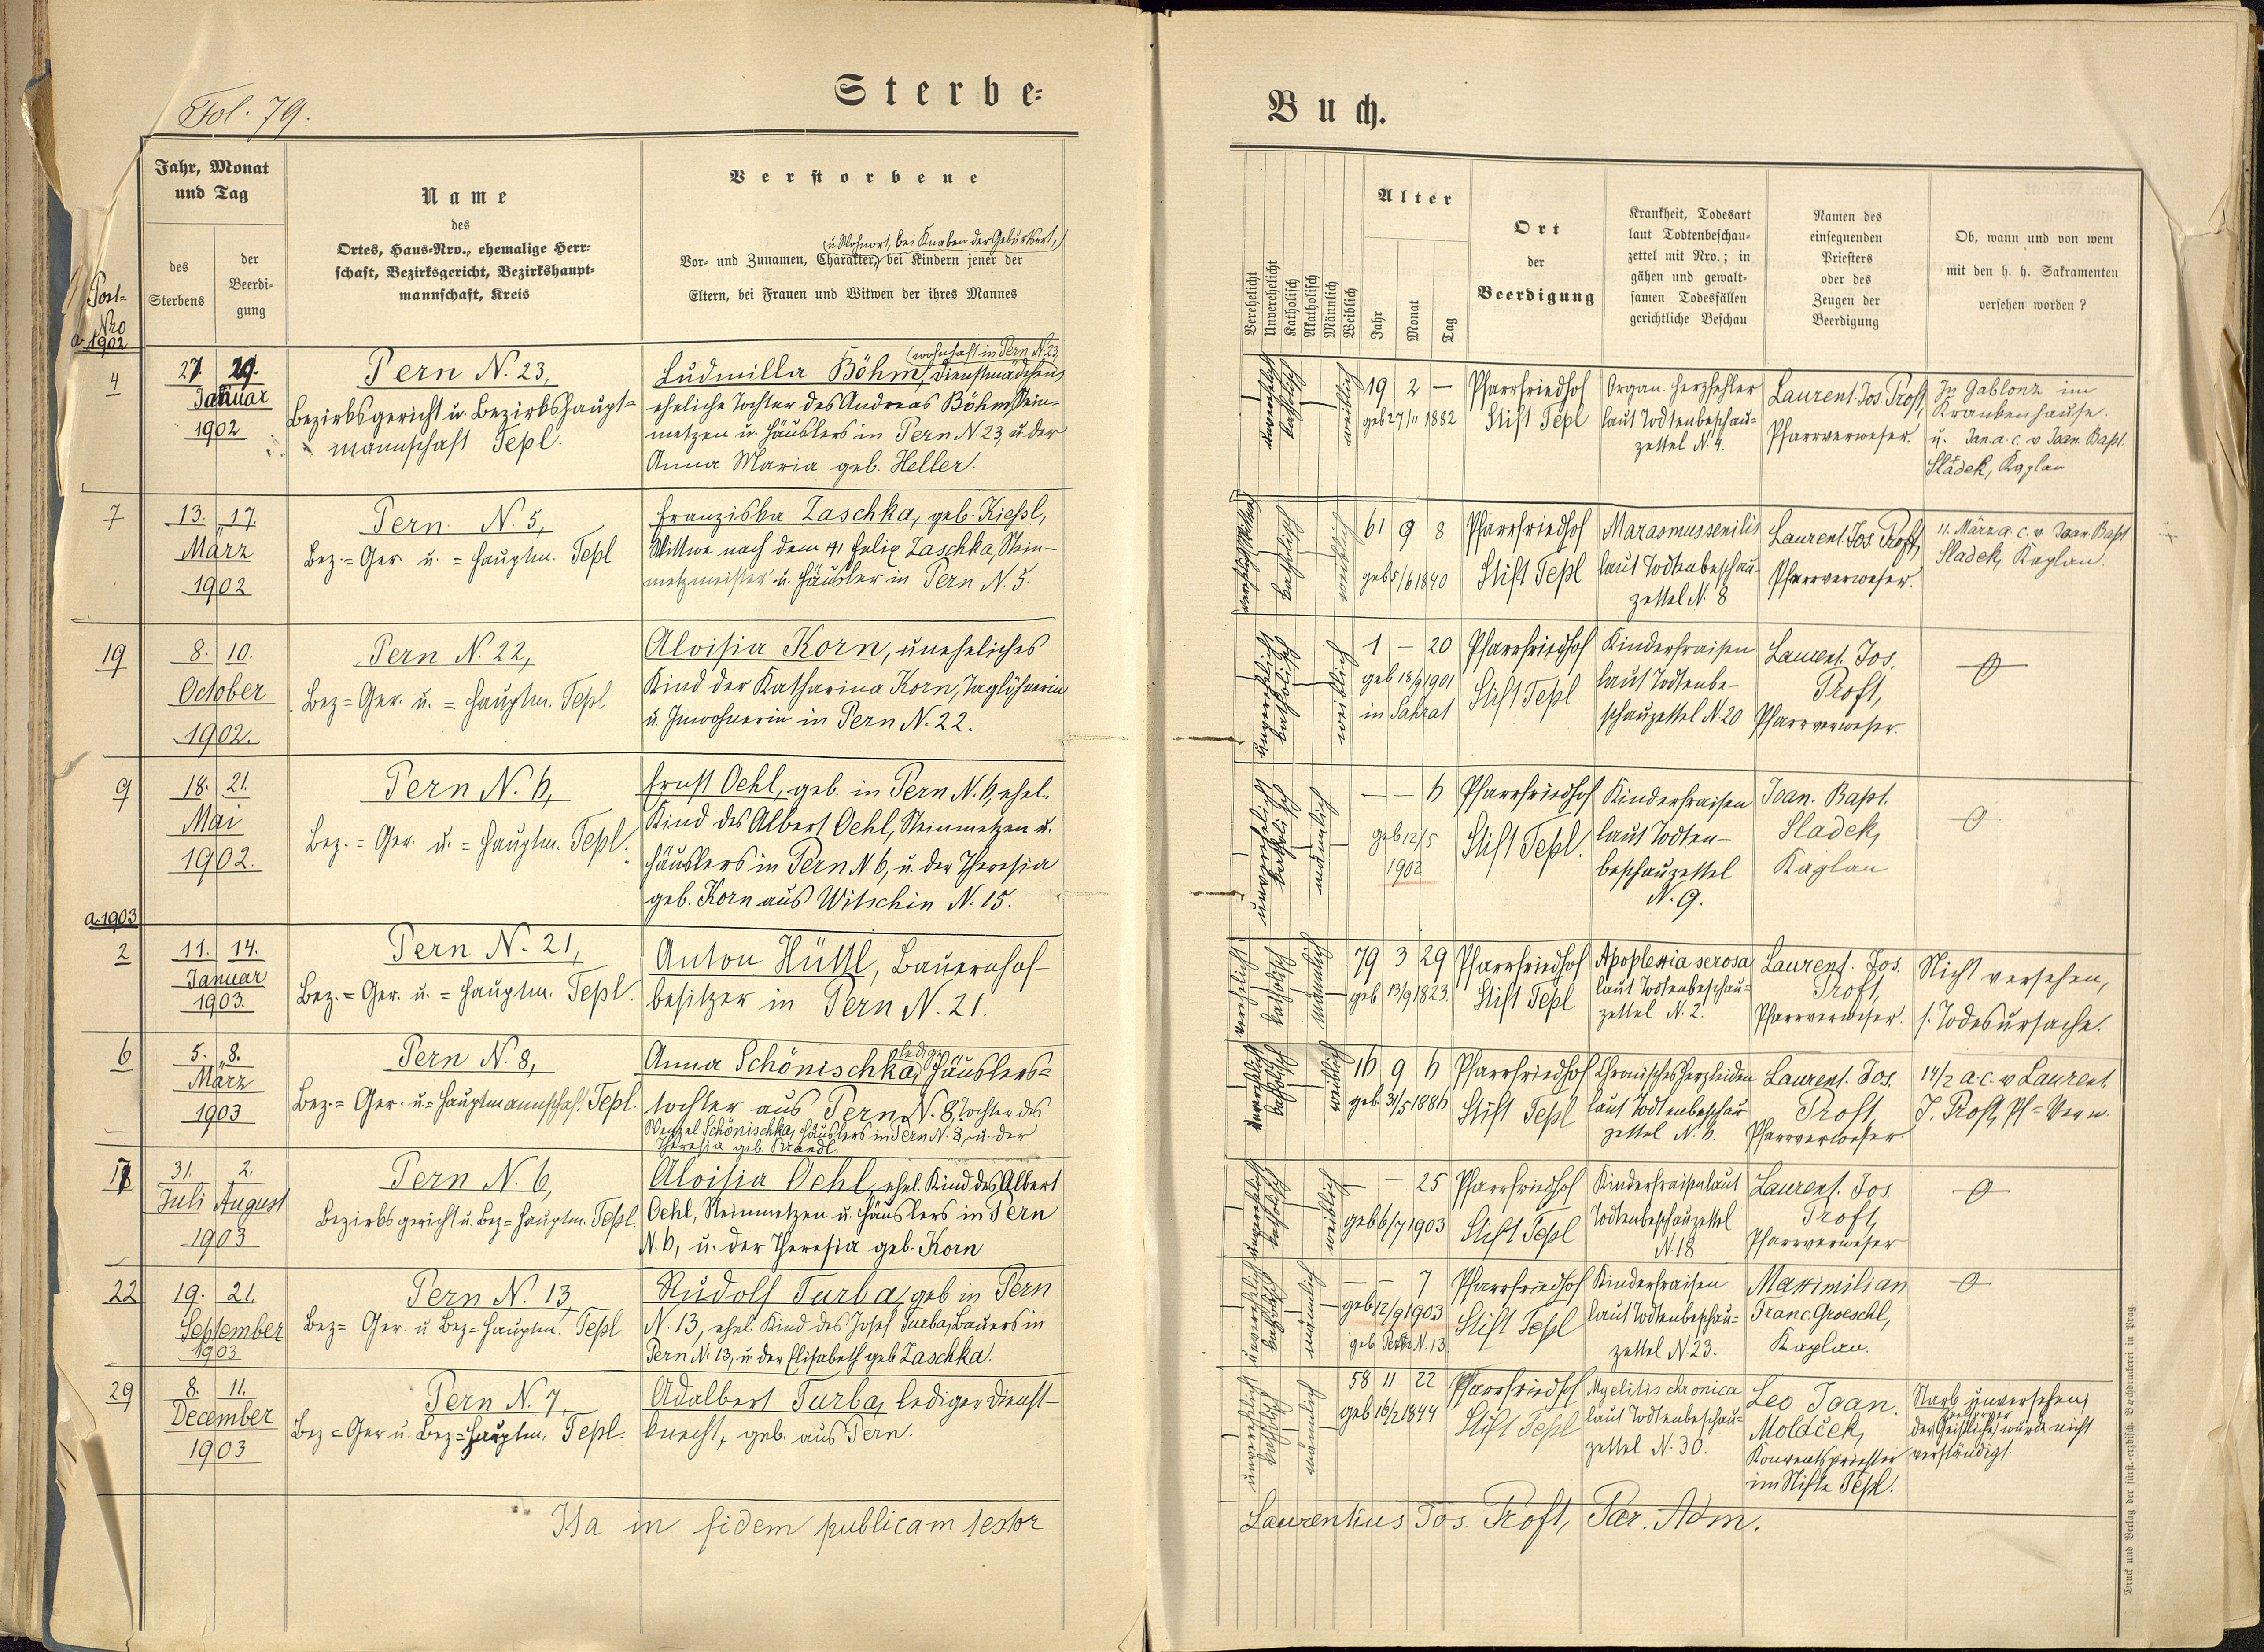 Fol. 79.
Sterbe-
Buch.
Jahr, Monat
und Tag
des
Sterbens
der
Beerdi-
gung
Name
des
Ortes, Haus-Nro., ehemalige Herr-
schaft, Bezirksgericht, Bezirkshaupt-
mannschaft, Kreis
Verstorbene
(u. Wohnort, bei Knaben der Geburtsort,)
Vor- und Zunamen, Charakter, bei Kindern jener der
Eltern, bei Frauen und Witwen der ihres Mannes
Verehelicht
Unverehelicht
Katholisch
Akatholisch
Männlich
Weiblich
Alter
Jahr
Monat
Tag
Ort
der
Beerdigung
Krankheit, Todesart
laut Todtenbeschau-
zettel mit Nro.; in
gähen und gewalt-
samen Todesfällen
gerichtliche Beschau
Namen des
einsegnenden
Priesters
oder des
Zeugen der
Beerdigung
Ob, wann und von wem
mit den h. h. Sakramenten
versehen worden?
Post-
Nro
a 1902
4
27. 29.
Januar
1902
Pern N. 23,
Bezirksgericht u. Bezirkshaupt-
mannschaft Tepl.
(wohnhaft in Pern N. 23
Ludmilla Böhm, Dienstmädchen,
eheliche Tochter des Andreas Böhm, Stein-
metzen u. Häuslers in Pern N. 23, u. der
Anna Maria geb. Heller.
unverehelicht
katholisch
weiblich
19 2 —
geb 27/11 1882
Pfarrfriedhof
Stift Tepl
Organ. Herzfehler
laut Todtenbeschau-
zettel N. 4.
Laurent. Jos. Proft,
Pfarrverweser.
In Gablonz im
Krankenhause.
u. Jan. a. c. v Joan. Bapt.
Sladek, Kaplan
7
13. 17.
März
1902
Pern N. 5,
Bez.= Ger. u. = Hauptm. Tepl
Franziska Zaschka, geb. Kießl,
Wittwe nach dem † Felix Zaschka, Stein-
metzmeister u. Häusler in Pern N. 5.
katholisch
weiblich
61 9 8
geb 5/6 1840
Pfarrfriedhof
Stift Tepl
Marasmus senilis
laut Todtenbeschau-
zettel N. 8
Laurent. Jos. Proft,
Pfarrverweser.
11. März a. c. v. Joan. Bapt
Sladek, Kaplan.
19
8. 10.
October
1902.
Pern N. 22,
Bez= Ger. u. = Hauptm. Tepl.
Aloisia Korn, uneheliches
Kind der Katharina Korn, Taglöhnerin
u. Inwohnerin in Pern N. 22.
unverehelicht
katholisch
weiblich
1 — 20
geb 18/9 1901
in Sahrat
Pfarrfriedhof
Stift Tepl
Kinderfraisen
laut Todtenbe-
schauzettel N. 20
Laurent. Jos.
Proft,
Pfarrverweser.
9
18. 21.
Mai
1902.
Pern N. 6,
Bez.= Ger. u. = Hauptm. Tepl.
Ernst Oehl, geb. in Pern N. 6, ehel.
Kind des Albert Oehl, Steinmetzen u.
Häuslers in Pern N. 6, u. der Theresia
geb. Korn aus Witschin N. 15.
unverehelicht
katholisch
männlich
— — 6
geb 12/5
1902
Pfarrfriedhof
Stift Tepl.
Kinderfraisen
laut Todten-
beschauzettel
N. 9.
Joan. Bapt.
Sladek,
Kaplan
a. 1903
2
11. 14.
Januar
1903.
Pern N. 21,
Bez.= Ger. u. = Hauptm. Tepl.
Anton Hüttl, Bauernhof-
besitzer in Pern N. 21.
verehelicht
katholisch
männlich
79 3 29
geb 13/9 1823.
Pfarrfriedhof
Stift Tepl
Apoplexia serosa
laut Todtenbeschau-
zettel N. 2.
Laurent. Jos.
Proft,
Pfarrverweser.
Nicht versehen,
s. Todesursache.
6
5. 8.
März
1903
Pern N. 8,
Bez.= Ger. u.= Hauptmannschaft Tepl.
ledige
Anna Schönischka, Häuslers-
tochter aus Pern N. 8, Tochter des
Wenzel Schönischka, Häuslers in Pern N. 8, u. der
Theresia geb. Brandl.
unverehelicht
katholisch
weiblich
16 9 6
geb 31/5 1886
Pfarrfriedhof
Stift Tepl
Chronisches Herzleiden
laut Todtenbeschau
zettel N. 6.
Laurent. Jos.
Proft,
Pfarrverweser.
14/2 a. c. v Laurent.
J. Proft, Pf=Verw.
18
31. 2.
Juli August
1903
Pern N. 6,
Bezirksgericht u. Bez= Hauptm. Tepl.
Aloisia Oehl, ehel. Kind des Albert
Oehl, Steinmetzen u. Häuslers in Pern
N. 6, u. der Theresia geb. Korn
unverehelicht
katholisch
weiblich
— — 25
geb 6/7 1903
Pfarrfriedhof
Stift Tepl
Kinderfraisen laut
Todtenbeschauzettel
N. 18
Laurent. Jos.
Proft,
Pfarrverweser
22
19. 21.
September
1903
Pern N. 13,
Bez= Ger. u. Bez= Hauptm. Tepl
Rudolf Turba, geb in Pern
N. 13, ehel. Kind des Josef Turba, Bauers in
Pern N. 13, u. der Elisabeth geb Zaschka.
unverehelicht
katholisch
männlich
— — 7
geb 12/9 1903
geb Pern N. 13
Pfarrfriedhof
Stift Tepl
Kinderfraisen
laut Todtenbeschau-
zettel N. 23.
Maximilian
Franc. Groeschl,
Kaplan.
29
8. 11.
December
1903
Pern N. 7,
Bez= Ger u. Bez= Hauptm. Tepl.
Adalbert Turba, lediger Dienst-
knecht, geb. aus Pern.
unverehelicht
katholisch
männlich
58 11 22
geb 16/2 1844
Pfarrfriedhof
Stift Tepl
Myelitis chronica
laut Todtenbeschau-
zettel N. 30.
Leo Joan.
Moláček,
Konventspriester
im Stifte Tepl.
Starb unversehen,
der Geistliche wurde nicht
verständigt
Ita in fidem publicam testor
Laurentius Jos. Proft, Par. Adm.
Druck und Verlag der fürst-erzbisch. Buchdruckerei in Prag.